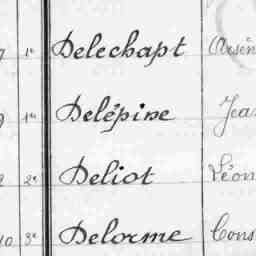 7 1e Delechapt Arsèn
9 1e Delépine Jea
2e Deliot Léon
10 3e Delorme Cons